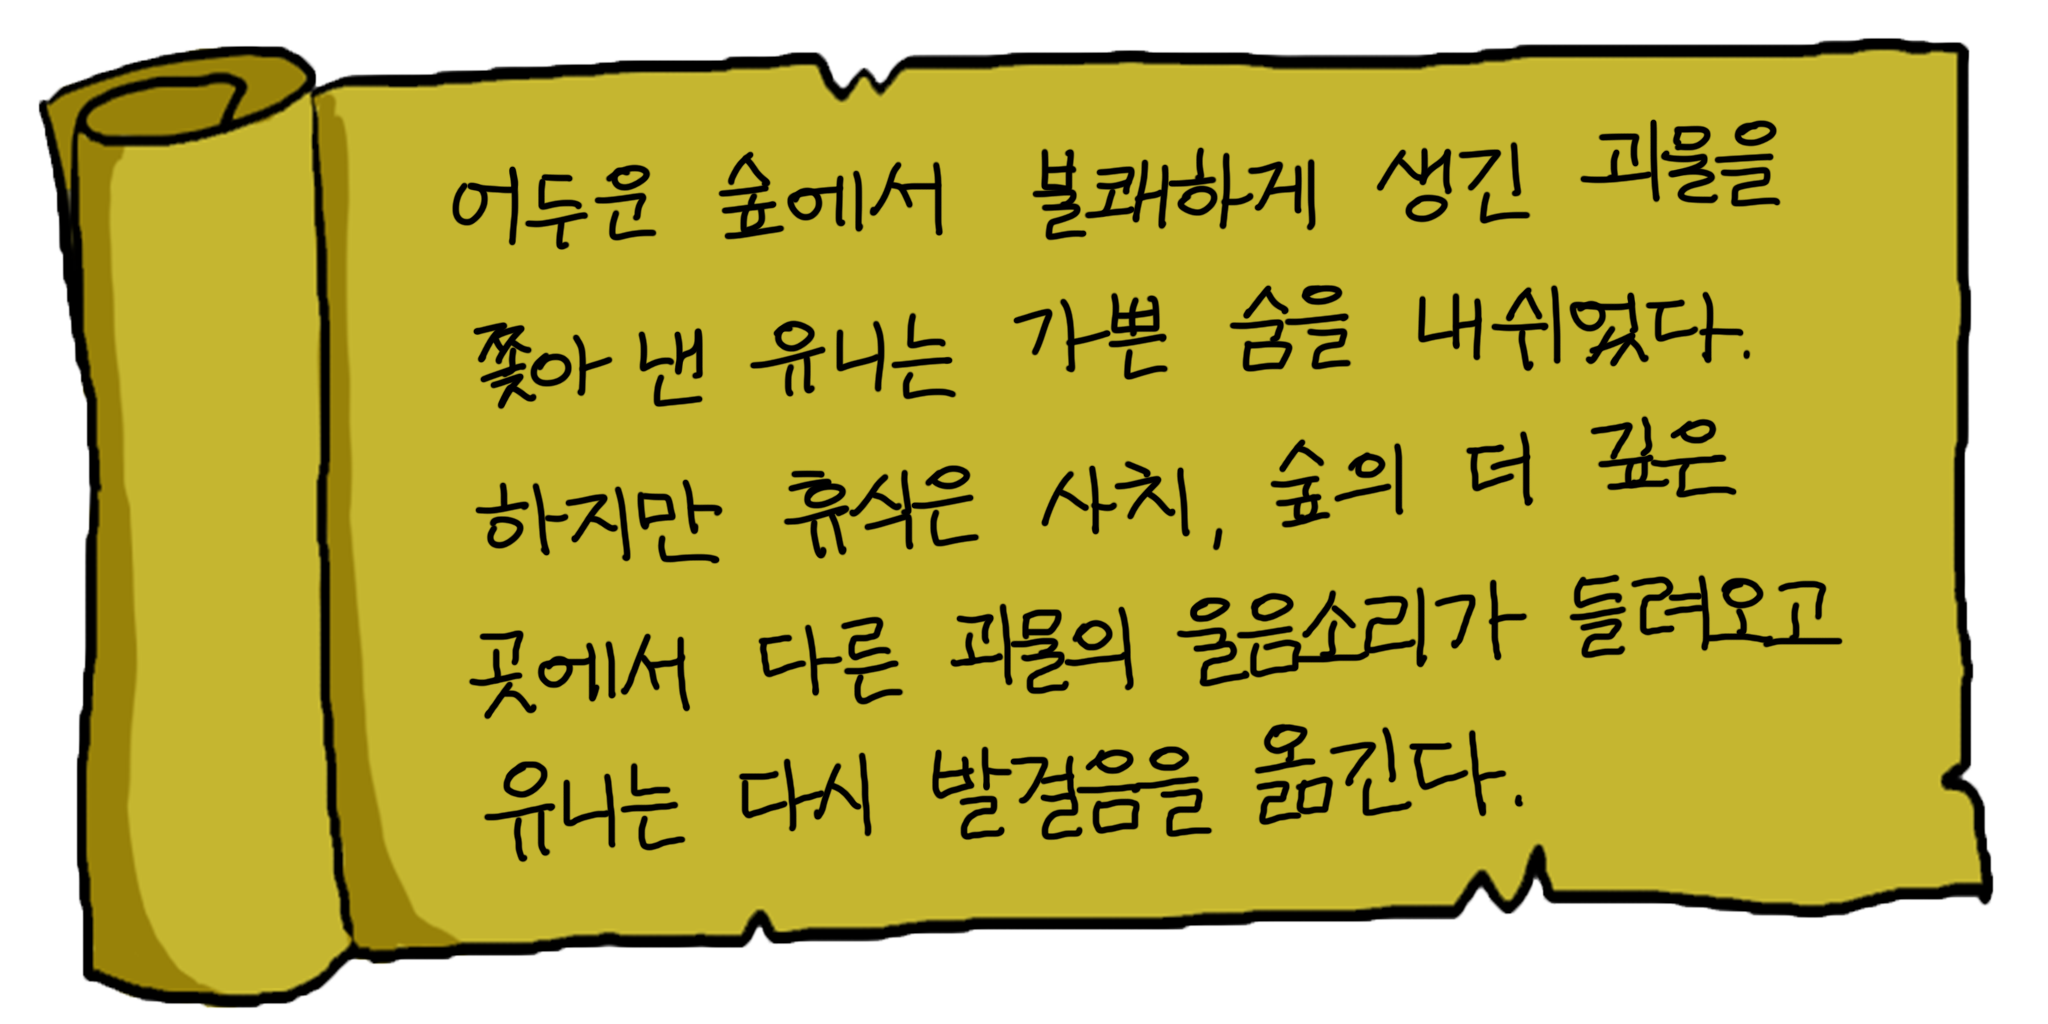 어두운 숲에서 불쾌하게 생긴 괴물을
쫓아 낸 유니는 가쁜 숨을 내쉬었다.
하지만 휴식은 사치, 숲의 더 깊은
곳에서 다른 괴물의 울음소리가 들려오고
유니는 다시 발걸음을 옮긴다.